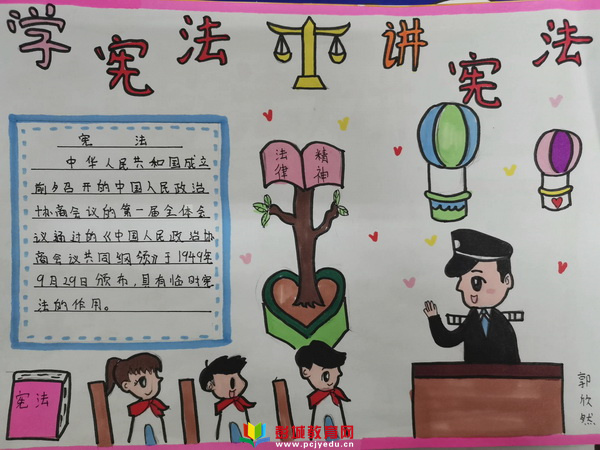 学宪法 讲宪法
宪 法
中华人民共和国成立
前夕召开的中国人民政治
协商会议的第一届全体会
议通过的《中国人民政治协
商会议共同纲领》于1949年
9月29日颁布，具有临时宪
法的作用。
法律 精神
宪法
郭欣然
彭城教育网
www.pcjyedu.cn